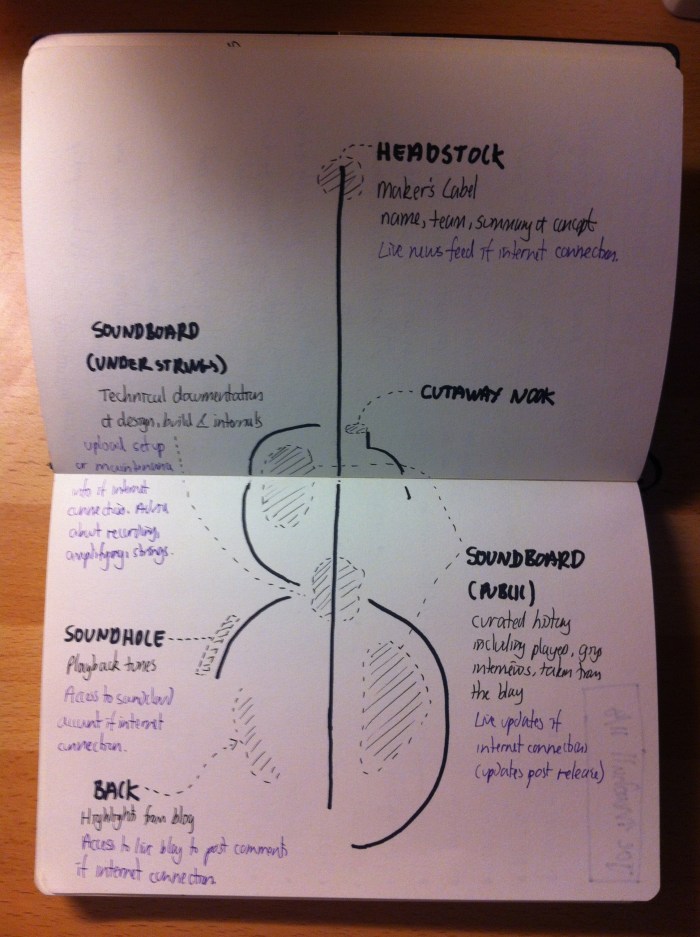 HEADSTOCK
Maker's Label
name, team, summary of concept
Live news feed if internet connection.
SOUNDBOARD
(UNDER STRINGS)
Technical documentation
of design, build & internals
upload setup
or maintenance
info if internet
connection. Advice
about recording,
amplifying, strings.
CUTAWAY NOOK
SOUNDBOARD
(PUBLIC)
curated history
including players, gigs
interviews, taken from
the blog
Live updates if
internet connection
(updates post release)
SOUNDHOLE
Playback tunes
Access to soundcloud
account if internet
connection.
BACK
Highlights from blog
Access to live blog to post comments
if internet connection.